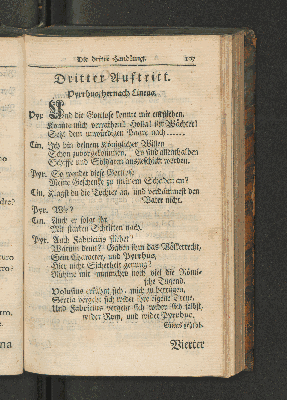 Die dritte Handlung. 107
Dritter Auftritt.
Pyrrhus, hernach Cineas.
Pyr. Und die Gottlose konnte mir entfliehen.
Konnte mich verrathen? Holla! ihr Wächter!
Setzt dem unwürdigen Paare nach
Cin. Ich bin deinem Königlichen Willen
Schon zuvorgekommen. Es sind allenthalben
Schiffe und Soldaten ausgeschickt worden.
Pyr. So wendet diese Gottlose
Meine Geschenke zu meinem Schaden an?
Cin. Klagst du die Tochter an, und verdammest den
Vater nicht.
Pyr. Wie?
Cin. Auch er folgt ihr
Mit starken Schritten nach.
Pyr. Auch Fabricius fliehet?
Warum denn? Gaben ihm das Völkerrecht,
Sein Character, und Pyrrhus,
Hier nicht Sicherheit genung?
Rühme mir nunmehro noch viel die Römi-
sche Tugend.
Volusius erkühnt sich, mich zu betrügen,
Sertia vergeht sich wider ihre eigene Treue,
Und Fabricius vergeht sich wider sich selbst,
wider Rom, und wider Pyrrhus.
Vierter